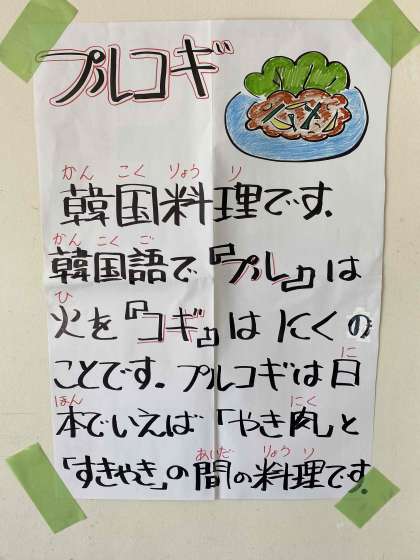 プルコギ
かんこくりょうり
韓国料理です.
かんこくご
韓国語で『プル』は
ひ
火を『コギ』はにくの
ことです.プルコギは日
に
本でいえば「やき肉」と
ほん にく
「すきやき」の間の料理です.
あいだ りょうり